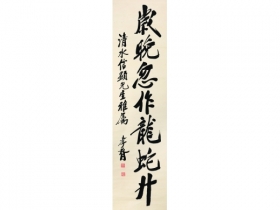 歲晚忽作龍蛇升
清水信顯先生雅屬 孝胥